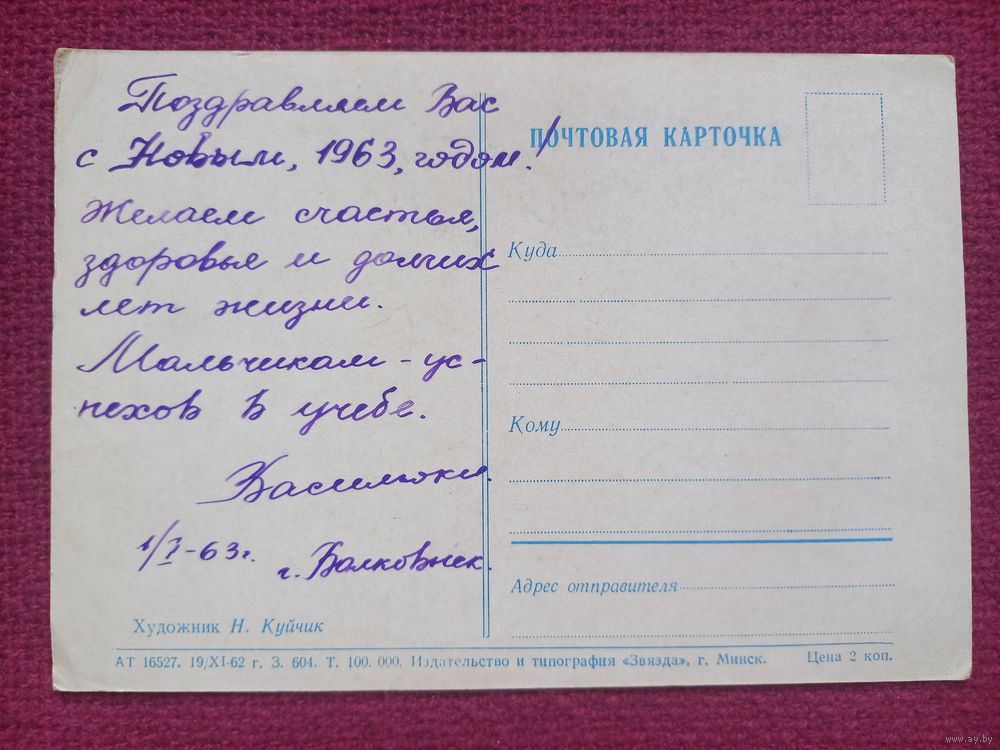 Поздравляем Вас
с Новым, 1963, годом!
Желаем счастья,
здоровья и долгих
лет жизни.
Мальчикам - ус-
пехов в учебе.
Василюки.
1/I-63г.
г. Волковыск.
Художник Н. Куйчик
ПОЧТОВАЯ КАРТОЧКА
Куда
Кому
Адрес отправителя
АТ 16527. 19/XI-62 г. З. 604. Т. 100. 000. Издательство и типография «Звязда», г. Минск. Цена 2 коп.
www.ay.by